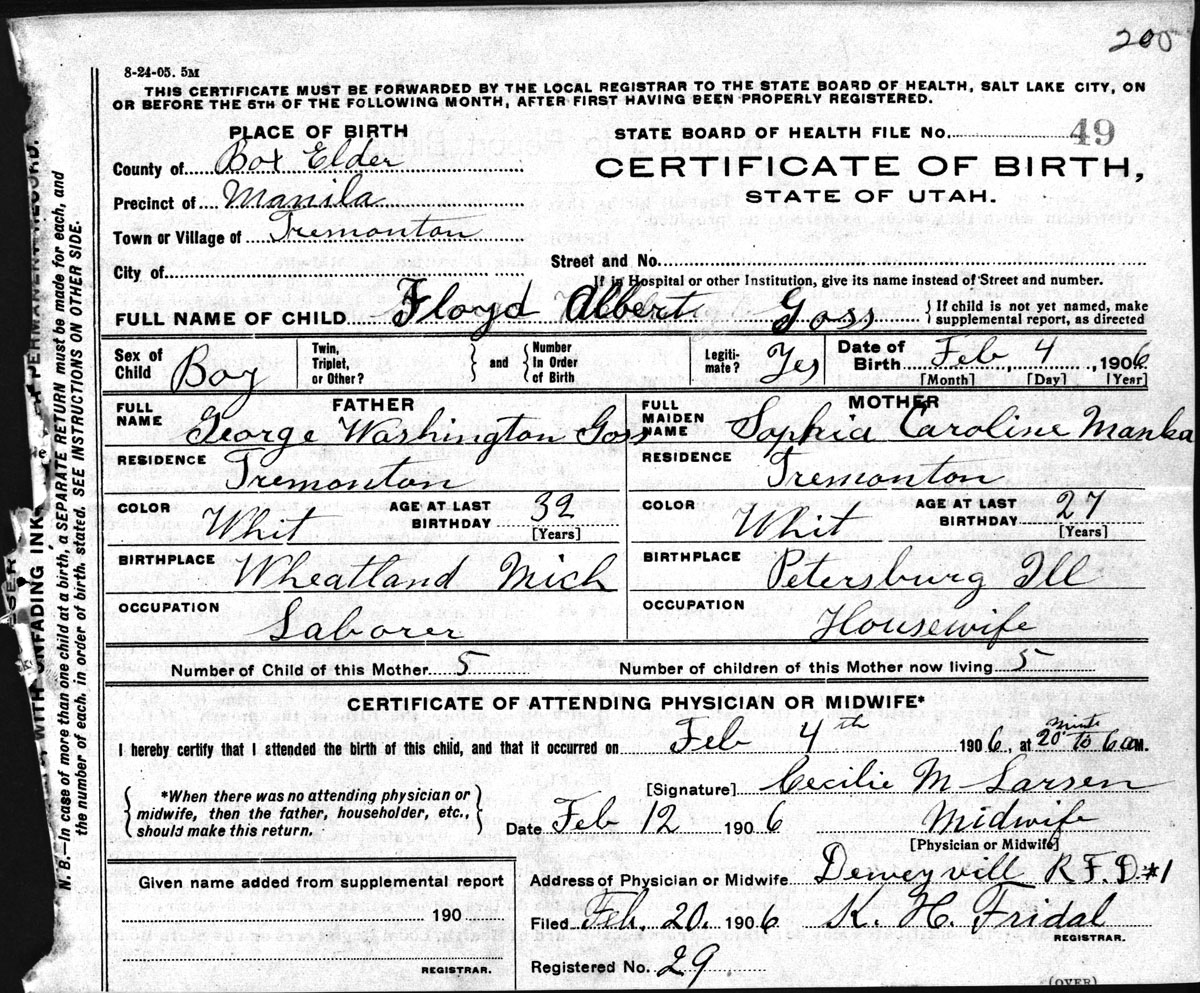 200
8-24-05. 5M
THIS CERTIFICATE MUST BE FORWARDED BY THE LOCAL REGISTRAR TO THE STATE BOARD OF HEALTH, SALT LAKE CITY, ON
OR BEFORE THE 5TH OF THE FOLLOWING MONTH, AFTER FIRST HAVING BEEN PROPERLY REGISTERED.
PLACE OF BIRTH
STATE BOARD OF HEALTH FILE No. 49
County of Box Elder
CERTIFICATE OF BIRTH,
Precinct of Manila
STATE OF UTAH.
Town or Village of Tremonton
City of
Street and No.
If in Hospital or other Institution, give its name instead of Street and number.
FULL NAME OF CHILD Floyd Albert Goss {If child is not yet named, make
supplemental report, as directed
Sex of Child Boy
Twin, Triplet, or Other? } and { Number In Order of Birth
Legiti-mate? Yes
Date of Birth Feb 4, 1906
[Month] [Day] [Year]
FATHER
FULL NAME George Washington Goss
MOTHER
FULL MAIDEN NAME Sophia Caroline Manka
RESIDENCE Tremonton
RESIDENCE Tremonton
COLOR Whit AGE AT LAST BIRTHDAY 32 [Years]
COLOR Whit AGE AT LAST BIRTHDAY 27 [Years]
BIRTHPLACE Wheatland Mich
BIRTHPLACE Petersburg Ill
OCCUPATION Laborer
OCCUPATION Housewife
Number of Child of this Mother 5 Number of children of this Mother now living 5
CERTIFICATE OF ATTENDING PHYSICIAN OR MIDWIFE*
I hereby certify that I attended the birth of this child, and that it occurred on Feb 4th 1906, at 20 minits to 6 a M.
{ *When there was no attending physician or
midwife, then the father, householder, etc.,
should make this return. }
[Signature] Cecilie M Larsen
Date Feb 12 1906 Midwife
[Physician or Midwife]
Given name added from supplemental report
190
REGISTRAR.
Address of Physician or Midwife Deweyvill R.F.D. #1
Filed Feb. 20. 1906 K. H. Fridal
REGISTRAR.
Registered No. 29
(OVER)
WITH UNFADING INK
PERMANENT RECORD.
N. B.—In case of more than one child at a birth, a SEPARATE RETURN must be made for each, and
the number of each, in order of birth, stated. SEE INSTRUCTIONS ON OTHER SIDE.